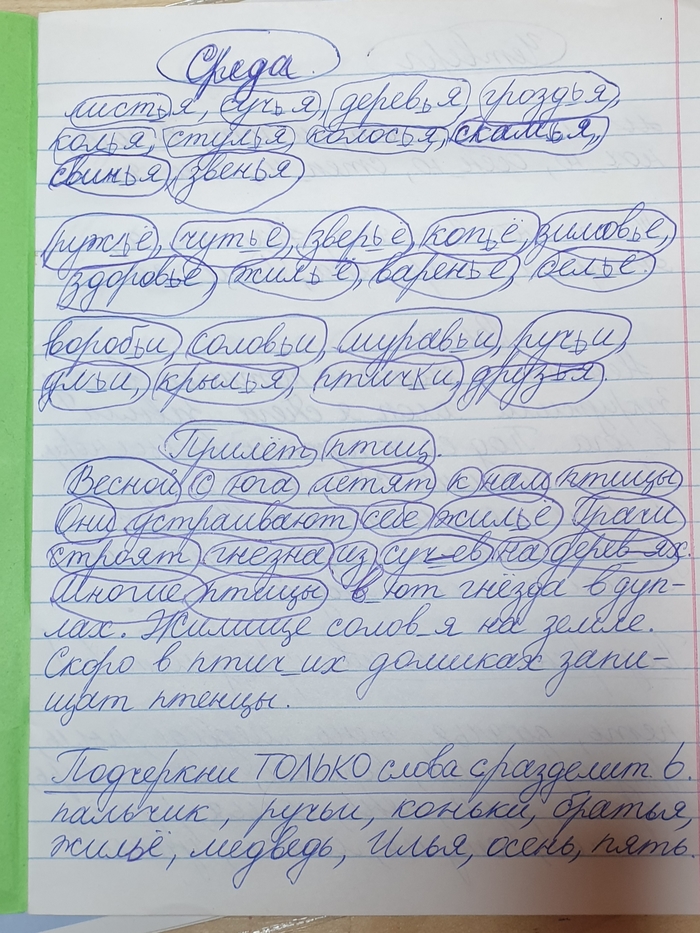 Среда.
листья, сучья, деревья, гроздья,
колья, стулья, колосья, скамья,
свинья, звенья
ружьё, чутьё, зверьё, копьё, зимовье,
здоровье, жильё, варенье, бельё.
воробьи, соловьи, муравьи, ручьи,
ульи, крылья, птички, друзья.
Прилёт птиц.
Весной с юга летят к нам птицы
Они устраивают себе жильё Грачи
строят гнезна из сук_ев на дерев_ях.
Многие птицы в_ют гнёзда в дуп-
лах. Жилище солов_я на земле.
Скоро в птич_их домиках запи-
щат птенцы.
Подчеркни ТОЛЬКО слова с разделит. ь.
пальчик, ручьи, коньки, братья,
жильё, медведь, Илья, осень, пять.